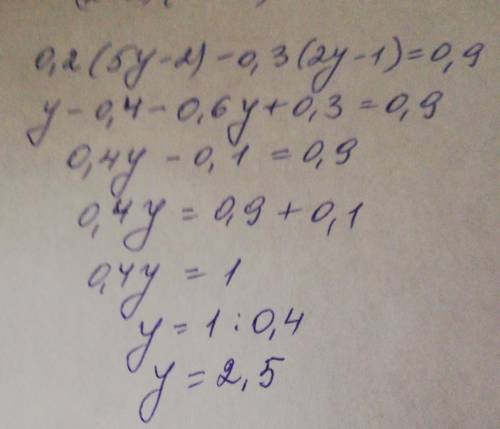 0,2(5y-2)-0,3(2y-1)=0,9
y-0,4-0,6y+0,3=0,9
0,4y-0,1=0,9
0,4y=0,9+0,1
0,4y=1
y=1:0,4
y=2,5